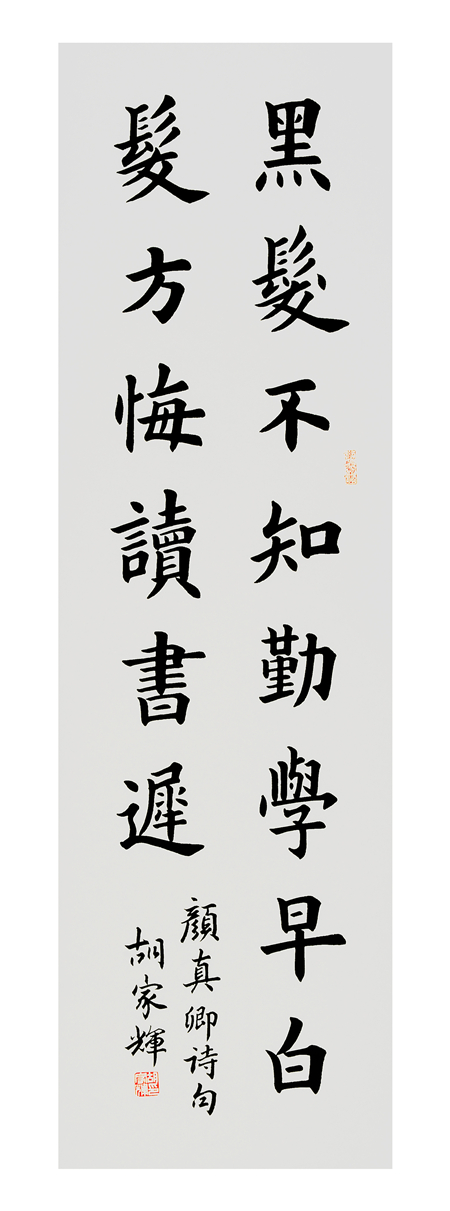 黑髮不知勤學早白
髮方悔讀書遲
顏真卿诗句
胡家輝